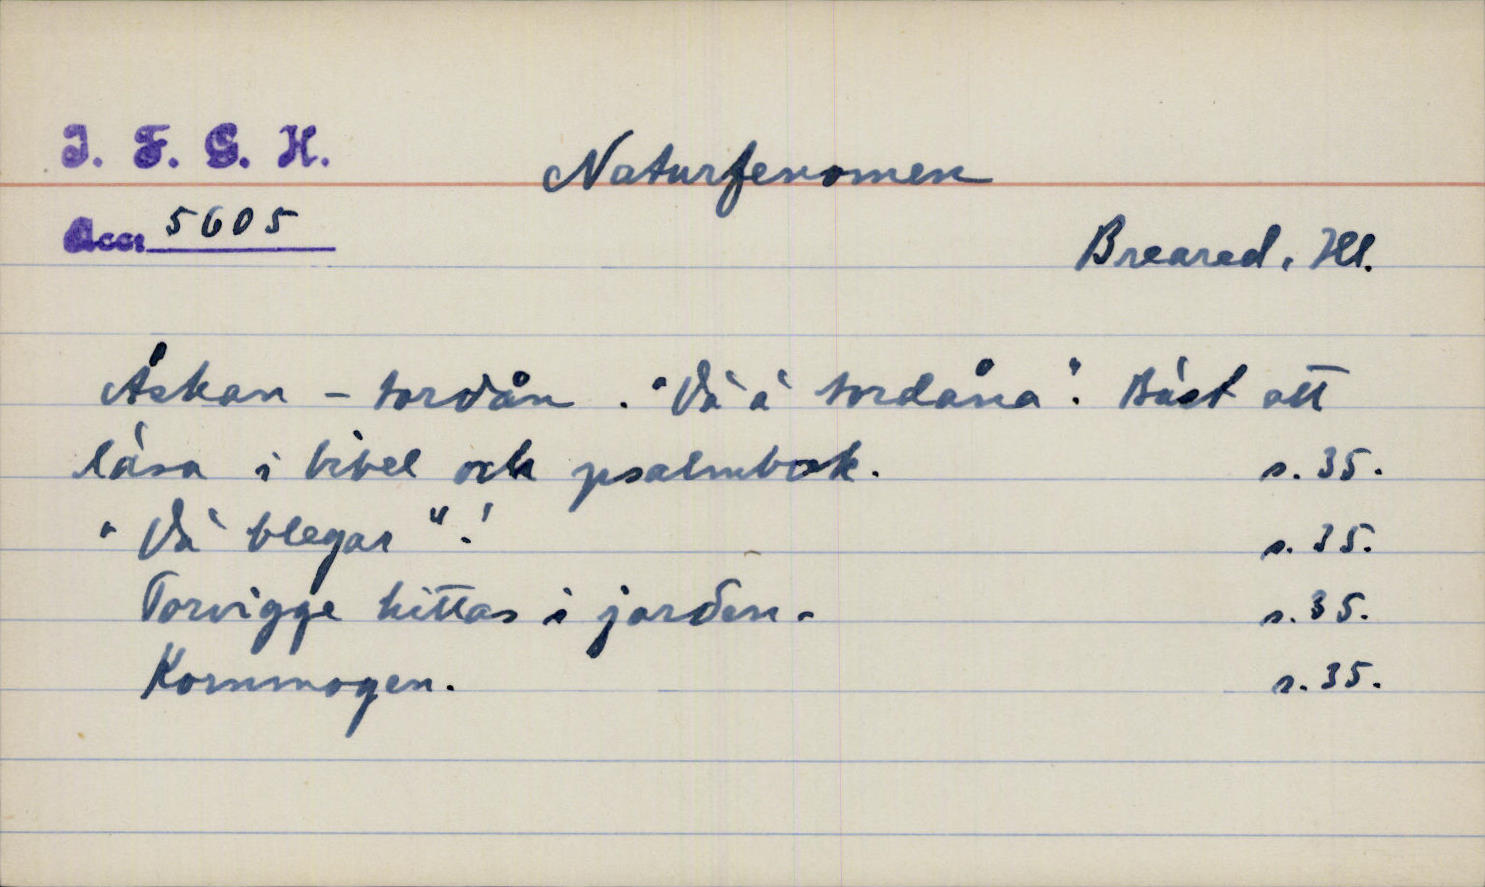 I. F. G. H.
Naturfenomen
Acc. 5605
Breared, Hl.
Åskan - tordån. "Dä ä tordåna". Bäst att
läsa i bibel och psalmbok. s. 35.
"Dä blegar"! s. 35.
Torvigge hittas i jorden. s. 35.
Kornmogen. s. 35.